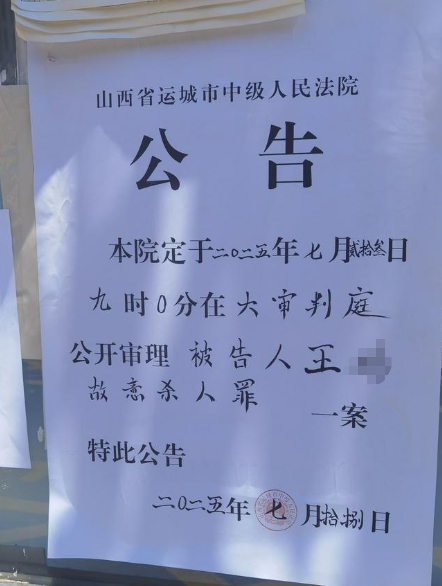 山西省运城市中级人民法院
公告
本院定于二〇二五年七月贰拾叁日
九时0分在大审判庭
公开审理 被告人王
故意杀人罪
一案
特此公告
二〇二五年七月拾捌日